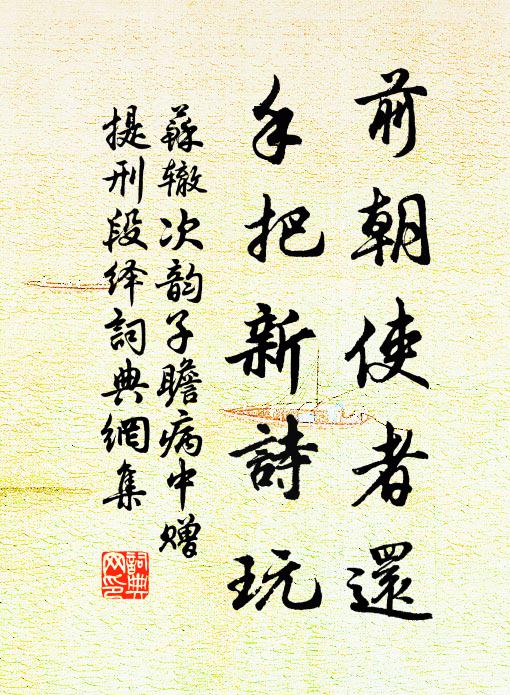 前朝使者還
手把新詩玩
蘇辙次韵子瞻病中赠
提刑段绎詞典網集
詞典网印